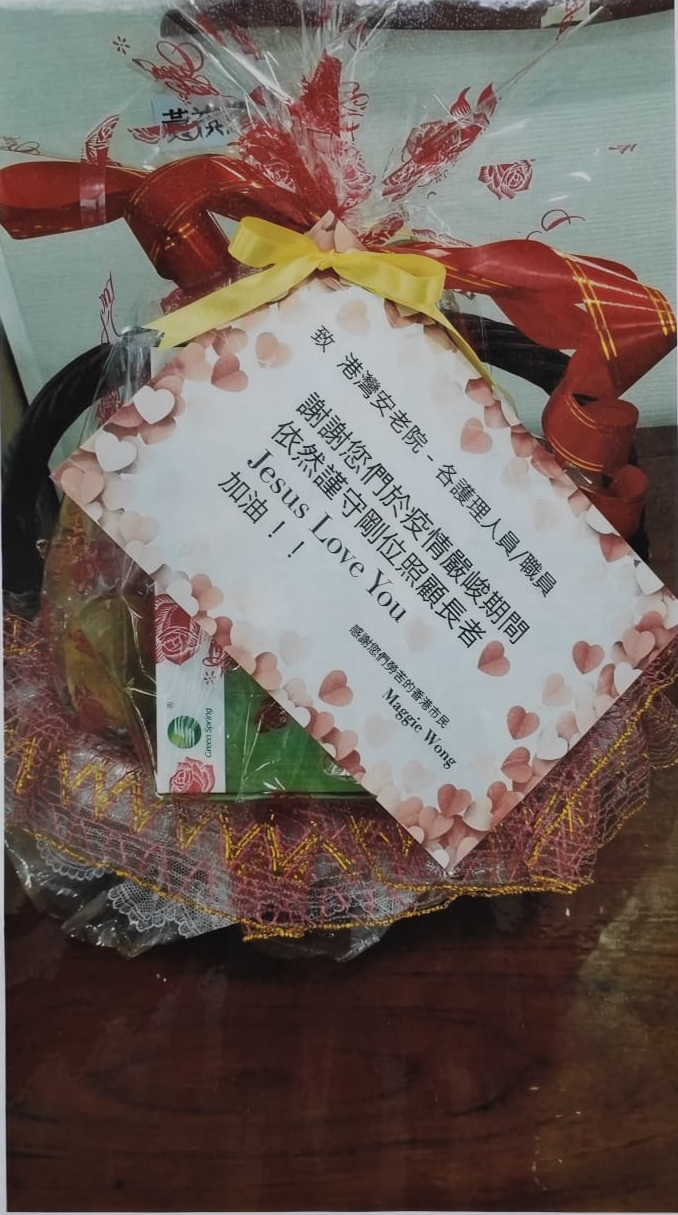 致 港灣安老院 - 各護理人員/職員
謝謝您們於疫情嚴峻期間
依然謹守剛位照顧長者
Jesus Love You
加油！！
感謝您們勞苦的香港市民
Maggie Wong
Green Spring
®